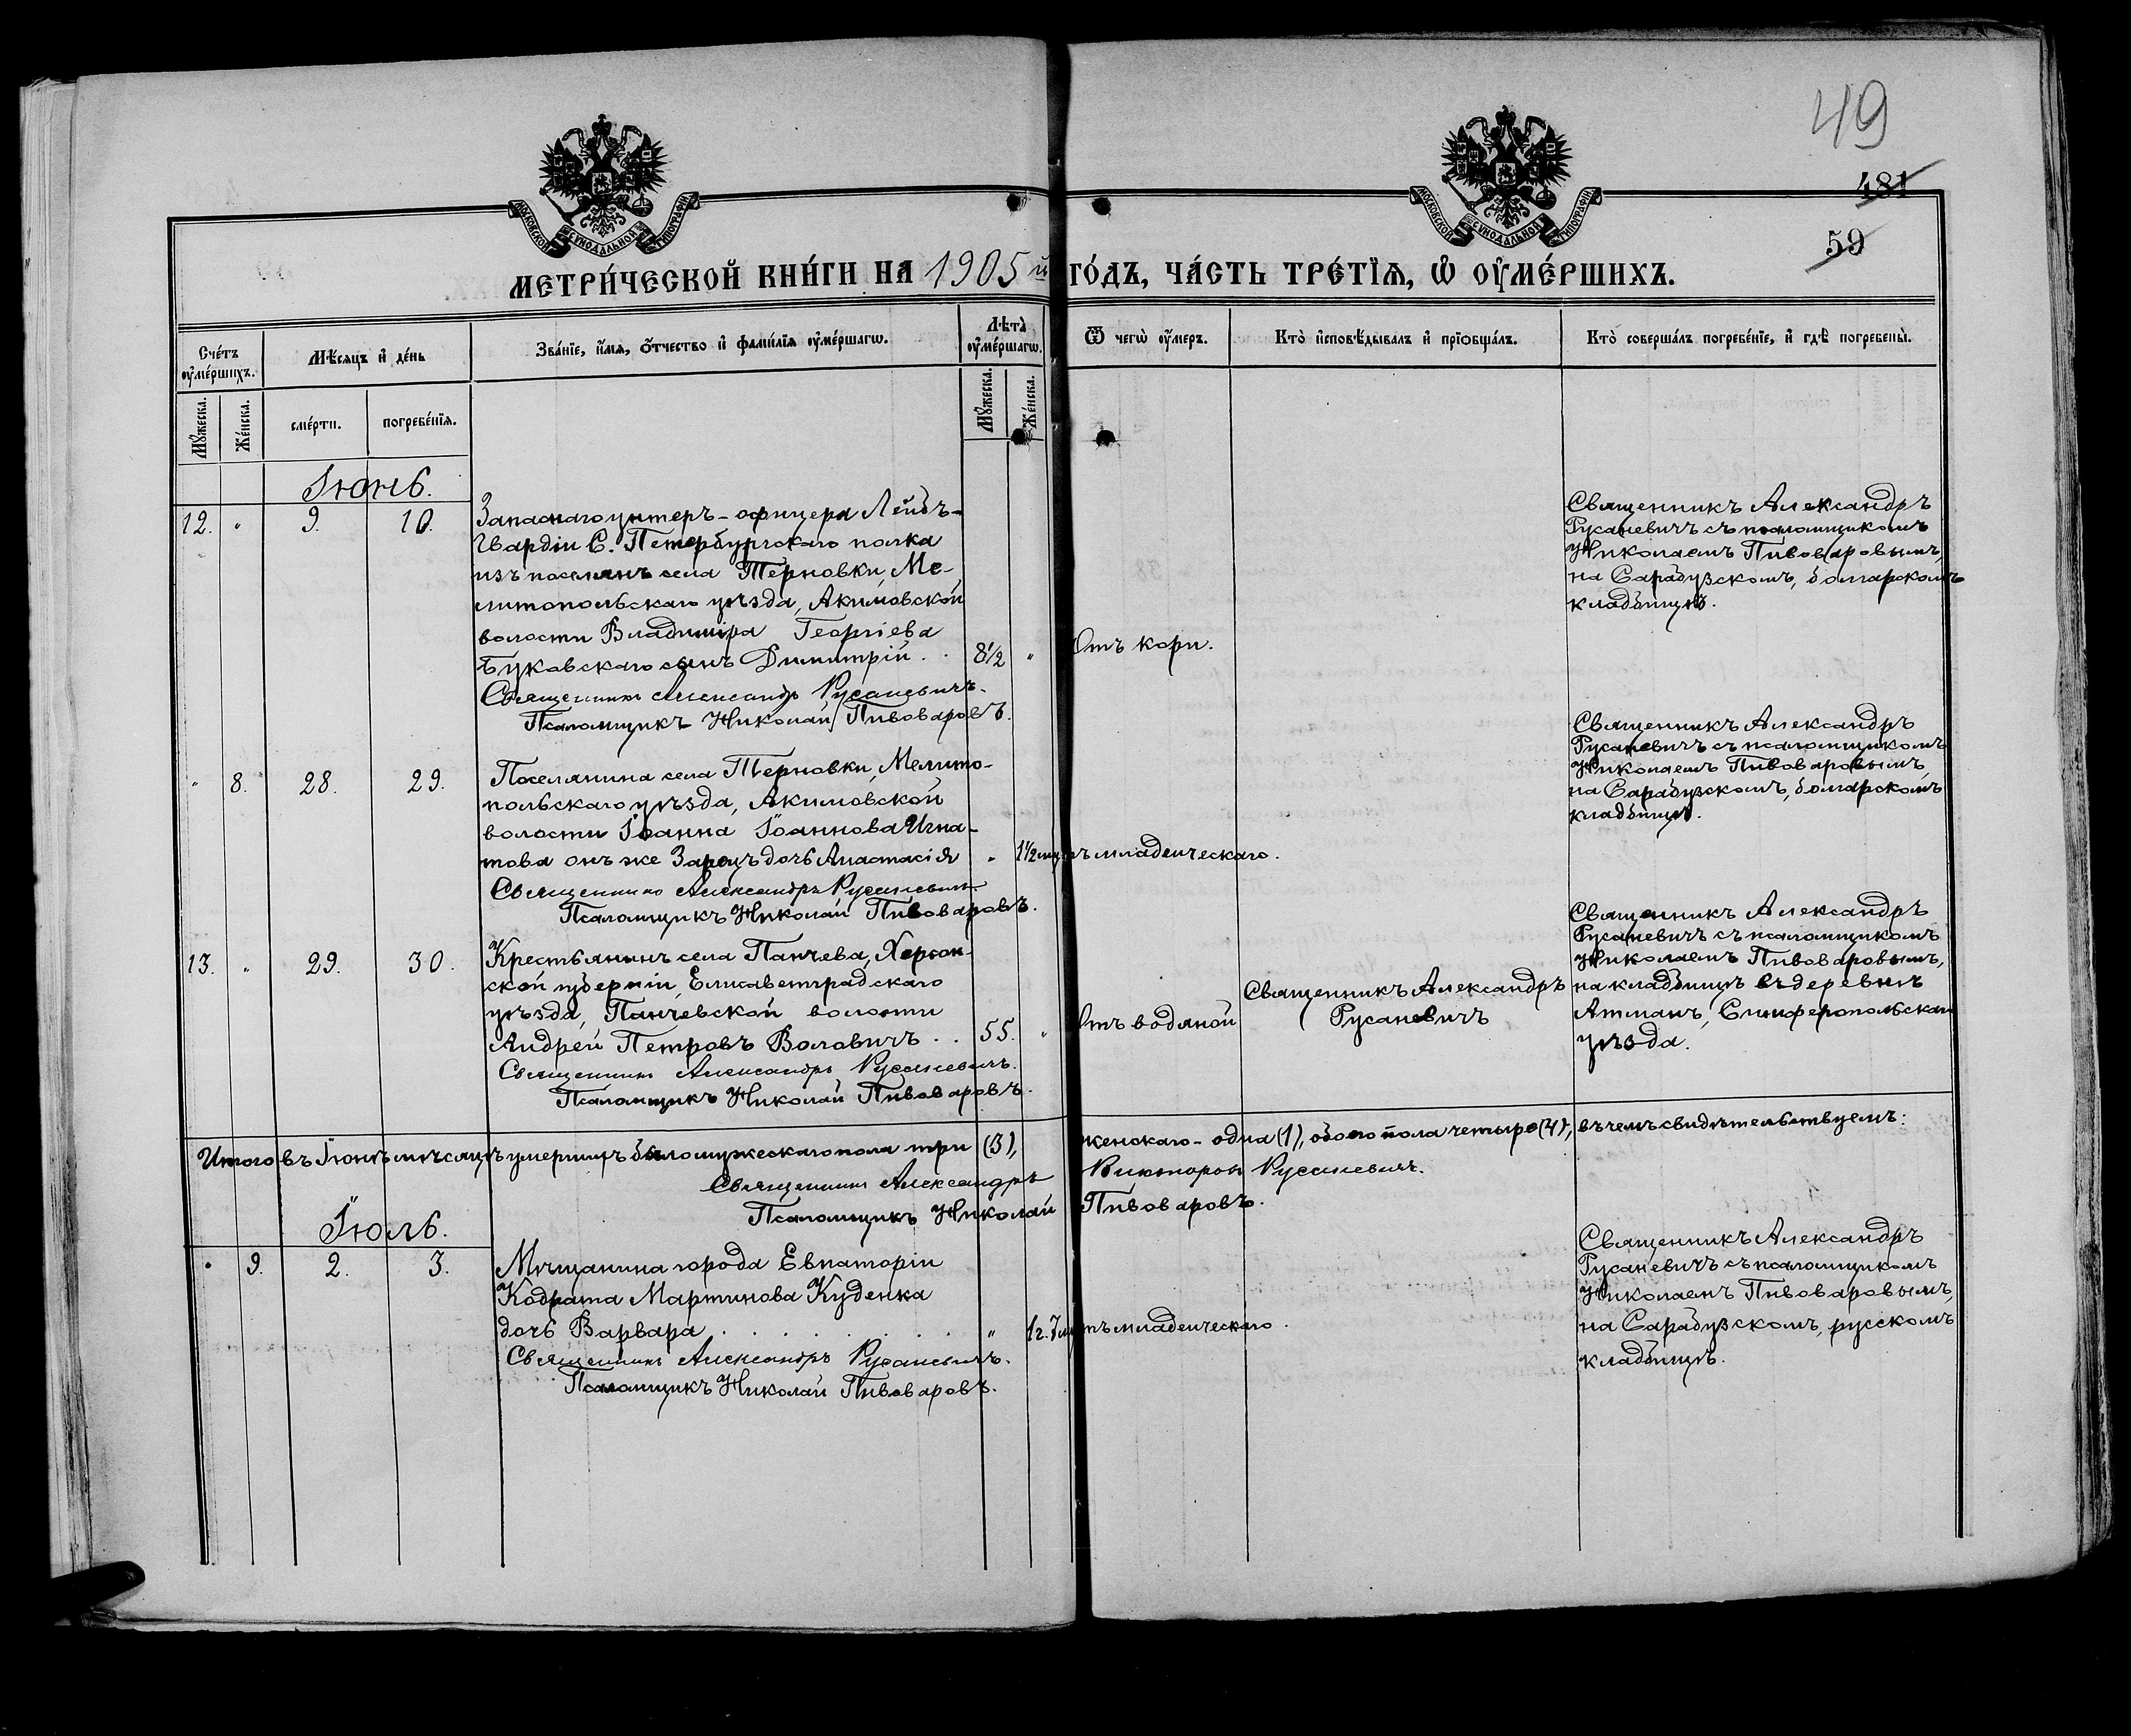 49
481
59
МОСКОВСКОЙ СѴНОДАЛЬНОЙ ТИПОГРАФІИ
МОСКОВСКОЙ СѴНОДАЛЬНОЙ ТИПОГРАФІИ
МЕТРИ́ЧЕСКОЙ КНИ́ГИ НА 1905й ГО́ДЪ, ЧА́СТЬ ТРЕ́ТІѦ, Ѡ҆ ОУ҆МЕ́РШИХЪ.
Сче́тъ оу҆ме́ршихъ.
Мѣ́сяцъ и҆ де́нь
Зва́нїе, и҆́мѧ, ѻ҆́тчество и҆ фами́лїѧ оу҆ме́ршагѡ.
Лѣ́та оу҆ме́ршагѡ.
Ѿ чегѡ̀ оу҆́меръ.
Кто̀ и҆сповѣ́дывалъ и҆ прїѡбща́лъ.
Кто̀ соверша́лъ погребе́нїе, и҆ гдѣ̀ погребены̀.
Мꙋ́жеска.
Же́нска.
сме́рти.
погребе́нїѧ.
Мꙋ́жеска.
Же́нска.
Іюнь.
12. „ 9. 10.
Запаснаго унтеръ-офицера Лейбъ-
Гвардіи С. Петербургскаго полка
изъ поселянъ села Терновки, Ме-
литопольскаго уѣзда, Акимовской
волости Владиміра Георгіева
Буковскаго сынъ Димитрій . . 8½ „ Отъ кори.
Священникъ Александръ Русаневичъ.
Псаломщикъ Николай Пивоваровъ.
Священникъ Александръ
Русаневичъ съ псаломщикомъ
Николаемъ Пивоваровымъ,
на Сарабузскомъ, болгарскомъ
кладбищѣ.
„ 8. 28. 29.
Поселянина села Терновки, Мелито-
польскаго уѣзда, Акимовской
волости Іоанна Іоаннова Игна-
това онъ же Зарецъ дочь Анастасія „ 1½ мѣс Отъ младенческаго.
Священникъ Александръ Русаневичъ
Псаломщикъ Николай Пивоваровъ.
Священникъ Александръ
Русаневичъ съ псаломщикомъ
Николаемъ Пивоваровымъ,
на Сарабузскомъ, болгарскомъ
кладбищѣ.
13. „ 29. 30.
Крестьянинъ села Панчева, Херсон-
ской губерніи, Елисаветградскаго
уѣзда, Панчевской волости
Андрей Петровъ Воловичъ . . 55. „ Отъ водяной
Священникъ Александръ Русаневичъ.
Псаломщикъ Николай Пивоваровъ.
Священникъ Александръ
Русаневичъ
Священникъ Александръ
Русаневичъ съ псаломщикомъ
Николаемъ Пивоваровымъ,
на кладбищѣ въ деревнѣ
Атманъ, Симферопольскаго
уѣзда.
Итого въ Іюнѣ мѣсяцѣ умершихъ было мужескаго пола три (3), женскаго - одна (1), обоего пола четыре (4), въ чемъ свидѣтельствуемъ:
Священникъ Александръ Викторов Русаневичъ.
Псаломщикъ Николай Пивоваровъ.
Іюль.
„ 9. 2. 3.
Мѣщанина города Евпаторіи
Кодрата Мартинова Куденка
дочь Варвара . . . . . . . „ 1г. 7м Отъ младенческаго.
Священникъ Александръ Русаневичъ.
Псаломщикъ Николай Пивоваровъ.
Священникъ Александръ
Русаневичъ съ псаломщикомъ
Николаемъ Пивоваровымъ,
на Сарабузскомъ, русскомъ
кладбищѣ.